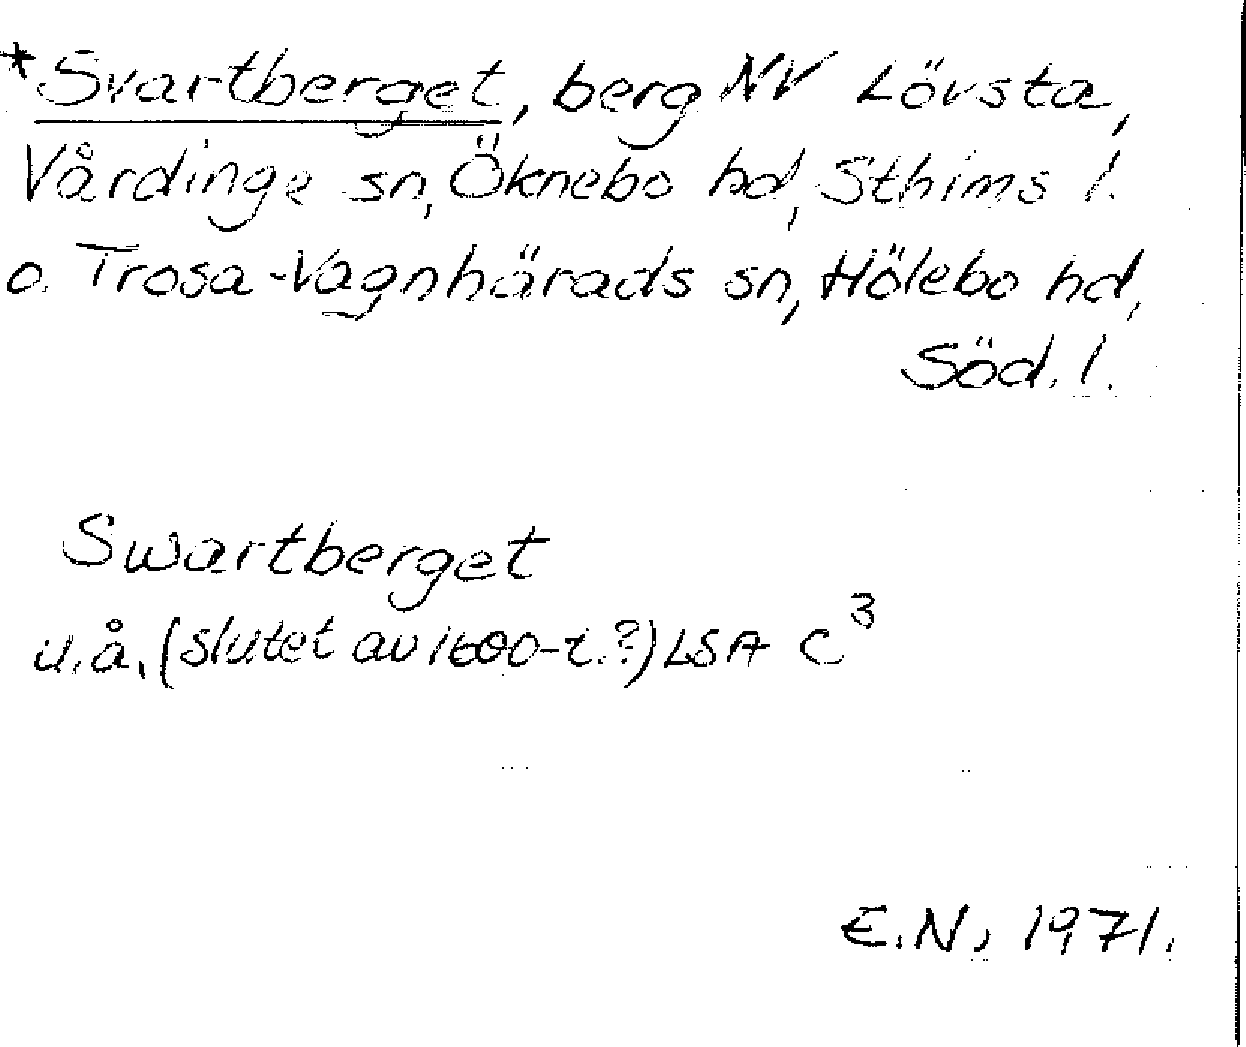 *Svartberget, berg NV Lövsta,
Vårdinge sn, Öknebo hd, Sthlms l.
o. Trosa-Vagnhärads sn, Hölebo hd,
Söd. l.
Swartberget
u.å. (slutet av 1600-t.?) LSA C³
E.N. 1971.